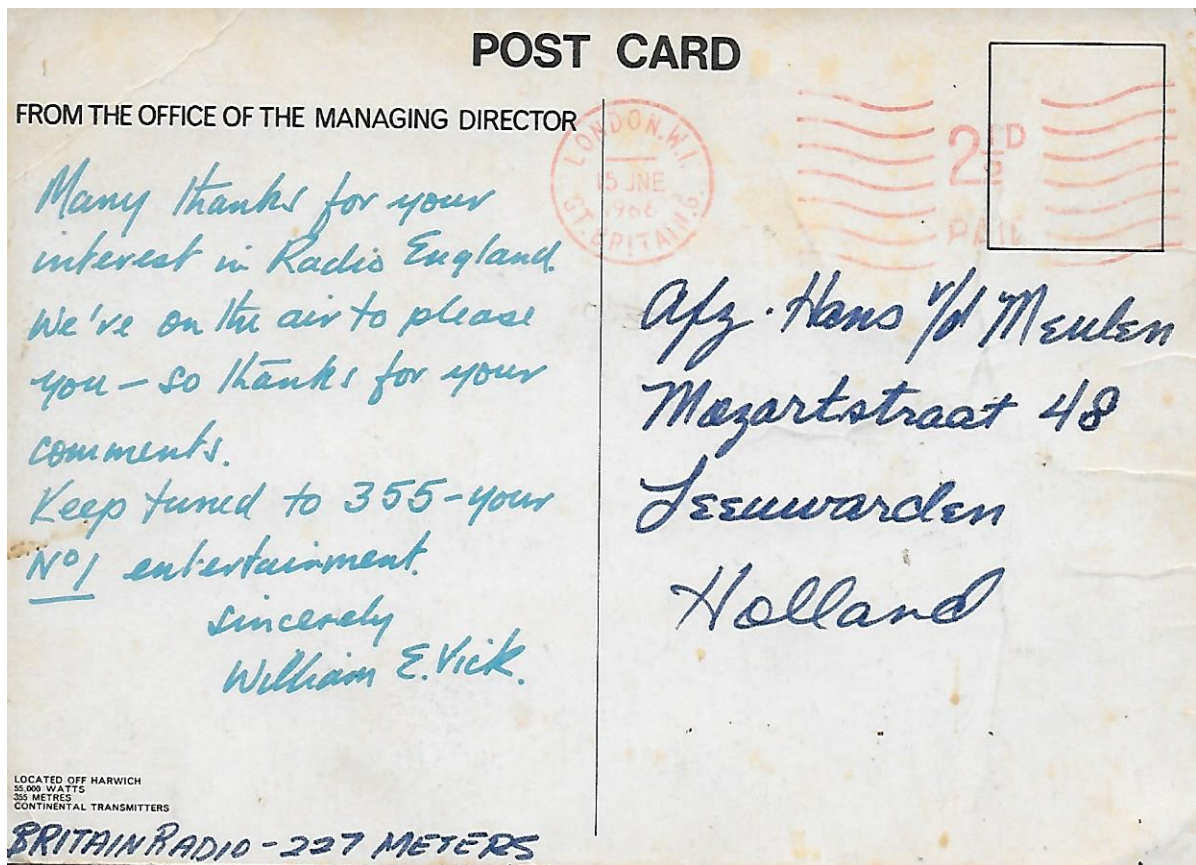 POST CARD
FROM THE OFFICE OF THE MANAGING DIRECTOR
Many thanks for your
interest in Radio England.
We've on the air to please
you – so thanks for your
comments.
Keep tuned to 355 – your
No1 entertainment.
sincerely
William E. Vick.
LOCATED OFF HARWICH
55,000 WATTS
355 METRES
CONTINENTAL TRANSMITTERS
BRITAIN RADIO – 227 METERS
LONDON. W.1.
15 JNE
1966
GT. BRITAIN
PAID
Afz. Hans v/d Meulen
Mozartstraat 48
Leeuwarden
Holland